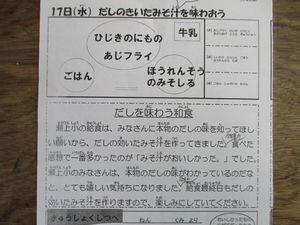 17日(水) だしのきいたみそ汁を味わおう
牛乳
ひじきのにもの
あじフライ
ごはん
ほうれんそう
のみそしる
だしを味わう和食
瀬上小の給食は、みなさんに本物のだしの味を知ってほし
い願いから、だしの効いたみそ汁を作ってきました。食べた
感想で一番多かったのが「みそ汁がおいしかった。」でした。
瀬上小のみなさんは、本物のだしの味がわかっているのだな
と、とても嬉しい気持ちになりました。給食最終日もだしの
効いたみそ汁を作りますので、楽しみにしていてください。
きゅうしょくしつへ
ねん
くみ より